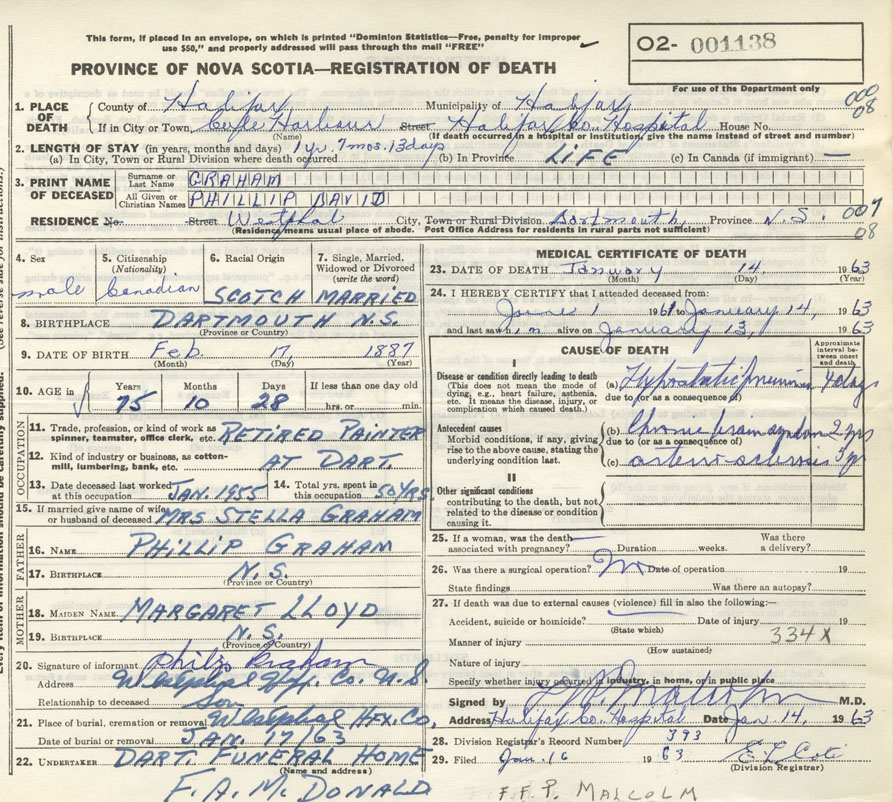 This form, if placed in an envelope, on which is printed "Dominion Statistics—Free, penalty for improper
use $50," and properly addressed will pass through the mail "FREE"
O2- 001138
PROVINCE OF NOVA SCOTIA—REGISTRATION OF DEATH
For use of the Department only
1. PLACE OF DEATH
County of Halifax Municipality of Halifax 000 08
If in City or Town, Cole Harbour Street Halifax Co. Hospital House No.
(Name) (If death occurred in hospital or institution, give the name instead of street and number)
2. LENGTH OF STAY (in years, months and days) 1 yr. 7 mos. 13 days
(a) In City, Town or Rural Division where death occurred (b) In Province LIFE (c) In Canada (if immigrant) —
3. PRINT NAME OF DECEASED
Surname or Last Name GRAHAM
All Given or Christian Names PHILLIP DAVID
RESIDENCE No. Street Westphal City, Town or Rural Division Dartmouth Province N.S. 007 08
(Residence means usual place of abode. Post Office Address for residents in rural parts not sufficient)
4. Sex male
5. Citizenship (Nationality) Canadian
6. Racial Origin SCOTCH
7. Single, Married, Widowed or Divorced (write the word) MARRIED
8. BIRTHPLACE DARTMOUTH N.S.
(Province or Country)
9. DATE OF BIRTH Feb. 17, 1887
(Month) (Day) (Year)
10. AGE in Years 75 Months 10 Days 28 If less than one day old
hrs. or min.
OCCUPATION
11. Trade, profession, or kind of work as spinner, teamster, office clerk, etc. RETIRED PAINTER
12. Kind of industry or business, as cotton-mill, lumbering, bank, etc. AT DART.
13. Date deceased last worked at this occupation JAN. 1955
14. Total yrs. spent in this occupation 50 YRS.
15. If married give name of wife or husband of deceased MRS STELLA GRAHAM
FATHER
16. NAME PHILLIP GRAHAM
17. BIRTHPLACE N.S.
(Province or Country)
MOTHER
18. MAIDEN NAME MARGARET LLOYD
19. BIRTHPLACE N.S.
(Province or Country)
20. Signature of informant Philip Graham
Address Westphal Hfx. Co. N.S.
Relationship to deceased Son
21. Place of burial, cremation or removal Westphal HFX. Co.
Date of burial or removal JAN. 17/63
22. UNDERTAKER DART. FUNERAL HOME
(Name and address)
F. A. McDONALD
MEDICAL CERTIFICATE OF DEATH
23. DATE OF DEATH January 14, 1963
(Month) (Day) (Year)
24. I HEREBY CERTIFY that I attended deceased from:
June 1 1961 to January 14, 1963
and last saw him alive on January 13, 1963
CAUSE OF DEATH
Approximate interval between onset and death
I
Disease or condition directly leading to death
(This does not mean the mode of dying, e.g., heart failure, asthenia, etc. It means the disease, injury, or complication which caused death.)
(a) Hypostatic pneumonia 4 days
due to (or as a consequence of)
Antecedent causes
Morbid conditions, if any, giving rise to the above cause, stating the underlying condition last.
(b) Chronic brain syndrom 2 yrs
due to (or as a consequence of)
(c) arterio-sclerosis 3 yr
II
Other significant conditions
contributing to the death, but not related to the disease or condition causing it.
25. If a woman, was the death associated with pregnancy? Duration weeks. Was there a delivery?
26. Was there a surgical operation? No Date of operation 19
State findings Was there an autopsy?
27. If death was due to external causes (violence) fill in also the following:—
Accident, suicide or homicide? Date of injury 19
(State which)
334X
Manner of injury
(How sustained)
Nature of injury
Specify whether injury occurred in industry, in home, or in public place
Signed by F. P. Malcolm M.D.
Address Halifax Co. Hospital Date Jan. 14, 1963
28. Division Registrar's Record Number 393
29. Filed Jan. 16 1963
(Division Registrar)
F. F. P. MALCOLM